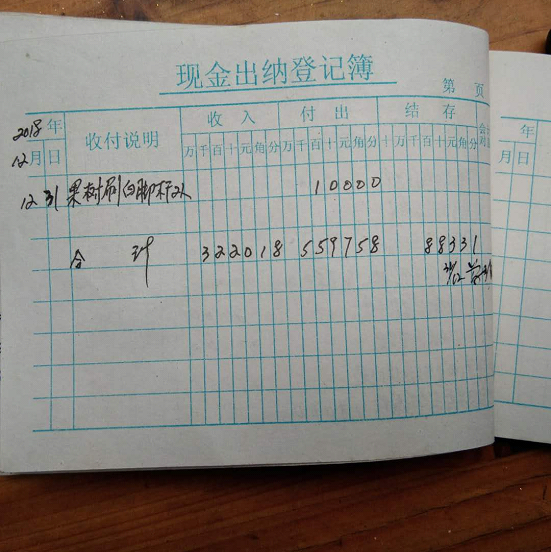 现金出纳登记簿
第 页
2018年 收付说明 收入 付出 结存
12月 日 万千百十元角分 万千百十元角分 十万千百十元角分
年
月 日
12 31 果树刷白脚杆 10000
合计 322018 559758 88331